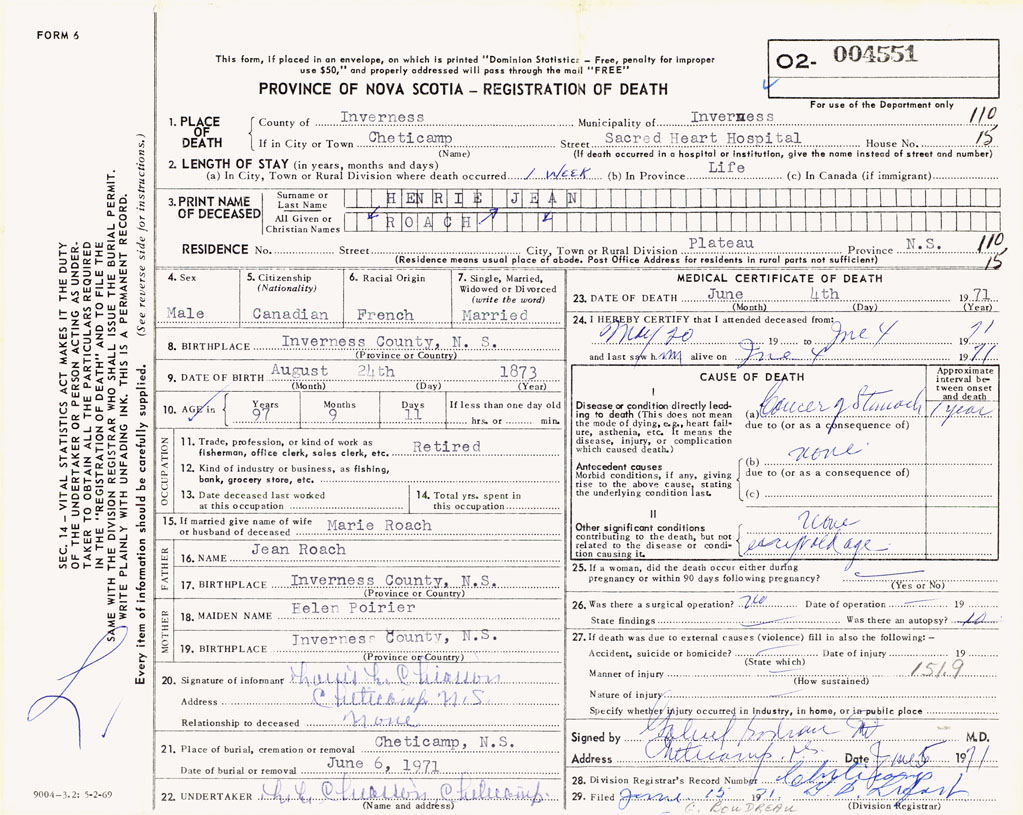 FORM 6
This form, if placed in an envelope, on which is printed "Dominion Statistics – Free, penalty for improper
use $50," and properly addressed will pass through the mail "FREE"
PROVINCE OF NOVA SCOTIA – REGISTRATION OF DEATH
02- 004551
For use of the Department only
1. PLACE OF DEATH County of Inverness Municipality of Inverness 110
If in City or Town Cheticamp Street Sacred Heart Hospital House No. 15
(Name) (If death occurred in a hospital or institution, give the name instead of street and number)
2. LENGTH OF STAY (in years, months and days)
(a) In City, Town or Rural Division where death occurred 1 WEEK (b) In Province Life (c) In Canada (if immigrant)
3. PRINT NAME OF DECEASED Surname or Last Name HENRIE JEAN
All Given or Christian Names ROACH
RESIDENCE No. Street City, Town or Rural Division Plateau Province N.S. 110
(Residence means usual place of abode. Post Office Address for residents in rural parts not sufficient) 15
4. Sex
Male
5. Citizenship
(Nationality)
Canadian
6. Racial Origin
French
7. Single, Married,
Widowed or Divorced
(write the word)
Married
8. BIRTHPLACE Inverness County, N. S.
(Province or Country)
9. DATE OF BIRTH August 24th 1873
(Month) (Day) (Year)
10. AGE in Years Months Days If less than one day old
97 9 11 hrs. or min.
OCCUPATION
11. Trade, profession, or kind of work as
fisherman, office clerk, sales clerk, etc. Retired
12. Kind of industry or business, as fishing,
bank, grocery store, etc.
13. Date deceased last worked
at this occupation
14. Total yrs. spent in
this occupation
15. If married give name of wife
or husband of deceased Marie Roach
FATHER
16. NAME Jean Roach
17. BIRTHPLACE Inverness County, N.S.
(Province or Country)
MOTHER
18. MAIDEN NAME Helen Poirier
19. BIRTHPLACE Inverness County, N.S.
(Province or Country)
20. Signature of informant Chiasson
Address Cheticamp N.S
Relationship to deceased None
21. Place of burial, cremation or removal Cheticamp, N.S.
Date of burial or removal June 6, 1971
22. UNDERTAKER Chiasson Cheticamp
(Name and address)
MEDICAL CERTIFICATE OF DEATH
23. DATE OF DEATH June 4th 1971
(Month) (Day) (Year)
24. I HEREBY CERTIFY that I attended deceased from:
May 20 19 to June 4 1971
and last saw him alive on June 4 1971
CAUSE OF DEATH
Approximate
interval be-
tween onset
and death
I
Disease or condition directly lead-
ing to death (This does not mean
the mode of dying, e.g., heart fail-
ure, asthenia, etc. It means the
disease, injury, or complication
which caused death.)
(a) Cancer of Stomach 1 year
due to (or as a consequence of)
none
Antecedent causes
Morbid conditions, if any, giving
rise to the above cause, stating
the underlying condition last.
(b)
due to (or as a consequence of)
(c)
II
Other significant conditions
contributing to the death, but not
related to the disease or condi-
tion causing it.
None
except old age
25. If a woman, did the death occur either during
pregnancy or within 90 days following pregnancy?
(Yes or No)
26. Was there a surgical operation? no Date of operation 19
State findings Was there an autopsy? no
27. If death was due to external causes (violence) fill in also the following: –
Accident, suicide or homicide? Date of injury 19
(State which)
Manner of injury 151.9
(How sustained)
Nature of injury
Specify whether injury occurred in Industry, in home, or in public place
Signed by M.D.
Address Cheticamp, N.S. Date June 5 1971
28. Division Registrar's Record Number Cheticamp
29. Filed June 15 1971
(Division Registrar)
G. BOUDREAU
SEC. 14 – VITAL STATISTICS ACT MAKES IT THE DUTY
OF THE UNDERTAKER OR PERSON ACTING AS UNDER-
TAKER TO OBTAIN ALL THE PARTICULARS REQUIRED
IN THE "REGISTRATION OF DEATH" AND TO FILE THE
SAME WITH THE DIVISION REGISTRAR WHO SHALL ISSUE THE BURIAL PERMIT.
WRITE PLAINLY WITH UNFADING INK. THIS IS A PERMANENT RECORD.
Every item of information should be carefully supplied. (See reverse side for instructions.)
9004-3.2: 5-2-69